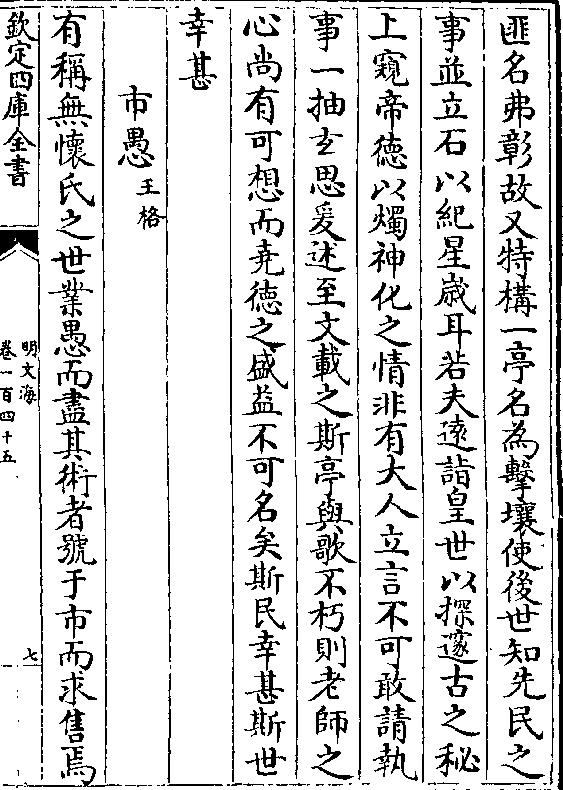 匪名弗彰故又特構一亭名為擊壤使後世知先民之
事並立石以紀星歲耳若夫遠詣皇世以探邃古之秘
上窺帝德以燭神化之情非有大人立言不可敢請執
事一抽玄思爰述至文載之斯亭與歌不朽則老師之
心尚有可想而堯徳之盛益不可名矣斯民幸甚斯世
幸甚
市愚 王格
有稱無懷氏之世業愚而盡其術者號于市而求售焉
欽定四庫全書
明文海
卷一百四十五
七